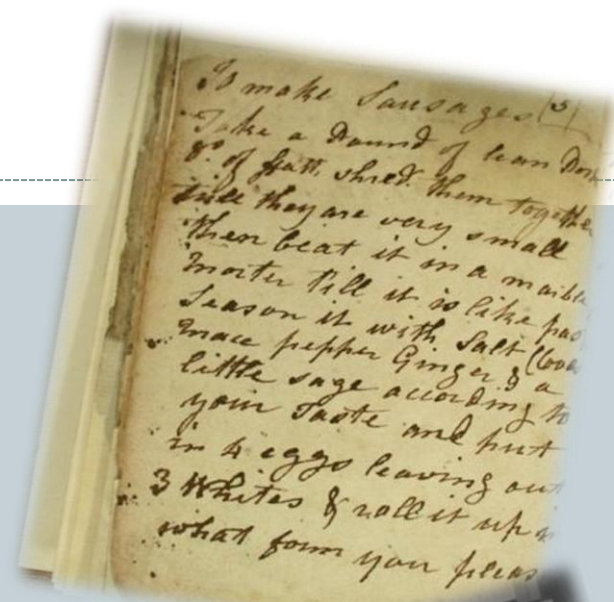 To make Sausages (5)
Take a Pound of lean Pork
& Do. of fatt shred them together
till they are very small
then beat it in a marble
morter till it is like pas
Season it with Salt
mace pepper Ginger & a
little sage according to
your Taste and put
in 4 eggs leaving out
3 Whites & roll it up
what form you pleas